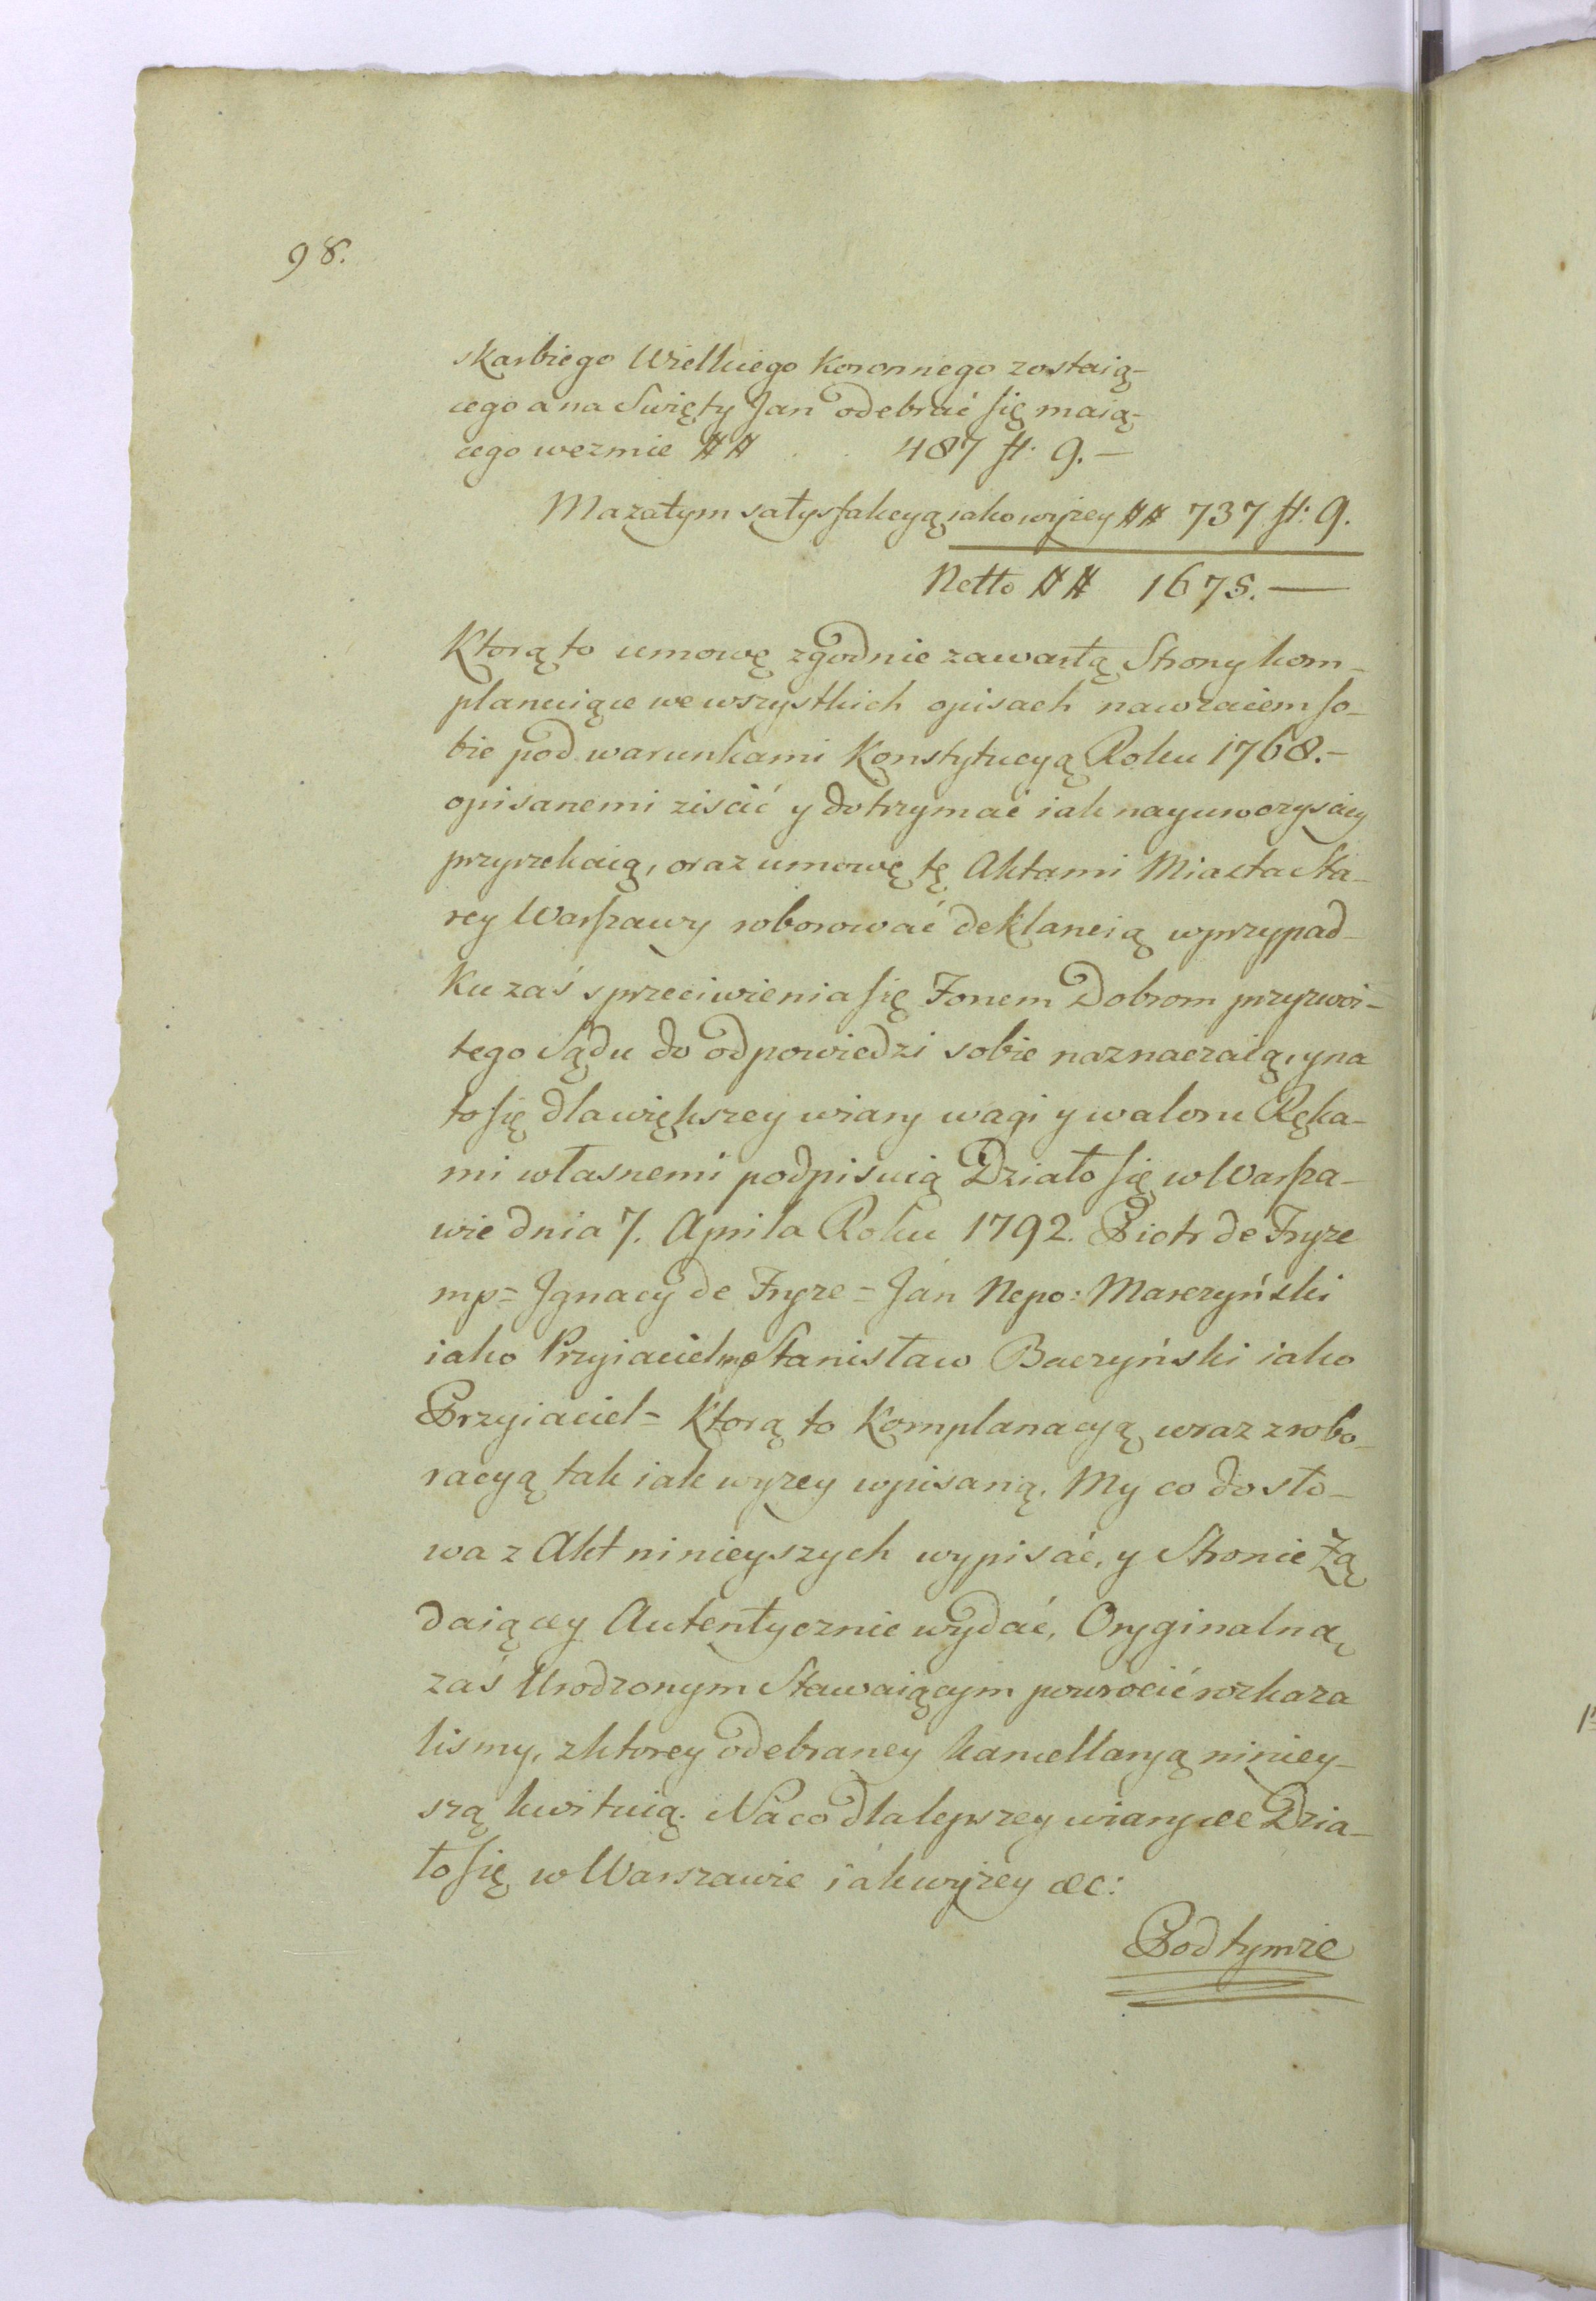 98.
skarbiego Wielkiego Koronnego zostaią-
cego a na Swięty Jan odebrać się maią-
cego wezmie ## . . 487 fl: 9.—
Ma zatym satysfakcyą iako wyżey ## 737 fl: 9.
Netto ## 1675.—
Ktorą to umowę zgodnie zawartą Strony kom-
planuiące we wszystkich opisach nawzaiem so-
bie pod warunkami Konstytucyą Roku 1768.-
opisanemi ziscić y dotrzymać iak nayuroczysciey
przyrzekaią, oraz umowę tę Aktami Miasta Sta-
rey Warszawy roborować deklaruią w przypad-
ku zaś sprzeciwienia się Forum Dobrom przyzwoi-
tego Sądu do odpowiedzi sobie naznaczaią, y na
to się dla większey wiary wagi y waloru Ręka-
mi własnemi podpisuią Działo się w Warsza-
wie dnia 7. Aprila Roku 1792. Piotr de Fryze
mp = Jgnacy de Fryze = Ján Nepo: Marczyński
iako Przyiaciel mp Stanisław Baczyński iako
Przyiaciel = Ktorą to Komplanacyą wraz z robo-
racyą tak iak wyżey wpisaną. My co do sło-
wa z Akt ninieyszych wypisać, y Stronie Żą
daiącey Autentycznie wydać, Oryginalną
zaś Urodzonym Stawaiącym powrócić rozkaza
lismy, z ktorey odebraney kancellaryą niniey-
szą kwituią. Na co dla lepszey wiary &c Dzia-
ło się w Warszawie iák wyżey &c:
Pod tymże